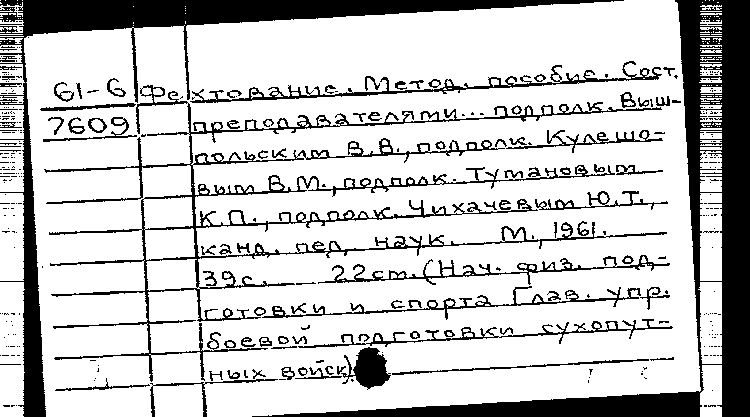 61-6 Фехтование. Метод. пособие. Сост.
7609 преподавателями... подполк. Выш-
польским В.В., подполк. Кулешо-
вым В.М., подполк. Тумановым
К.П., подполк. Чихачевым Ю.Т.,
канд. пед. наук. М., 1961.
39с. 22см. (Нач. физ. под-
готовки и спорта Глав. упр.
боевой подготовки сухопут-
ных войск)